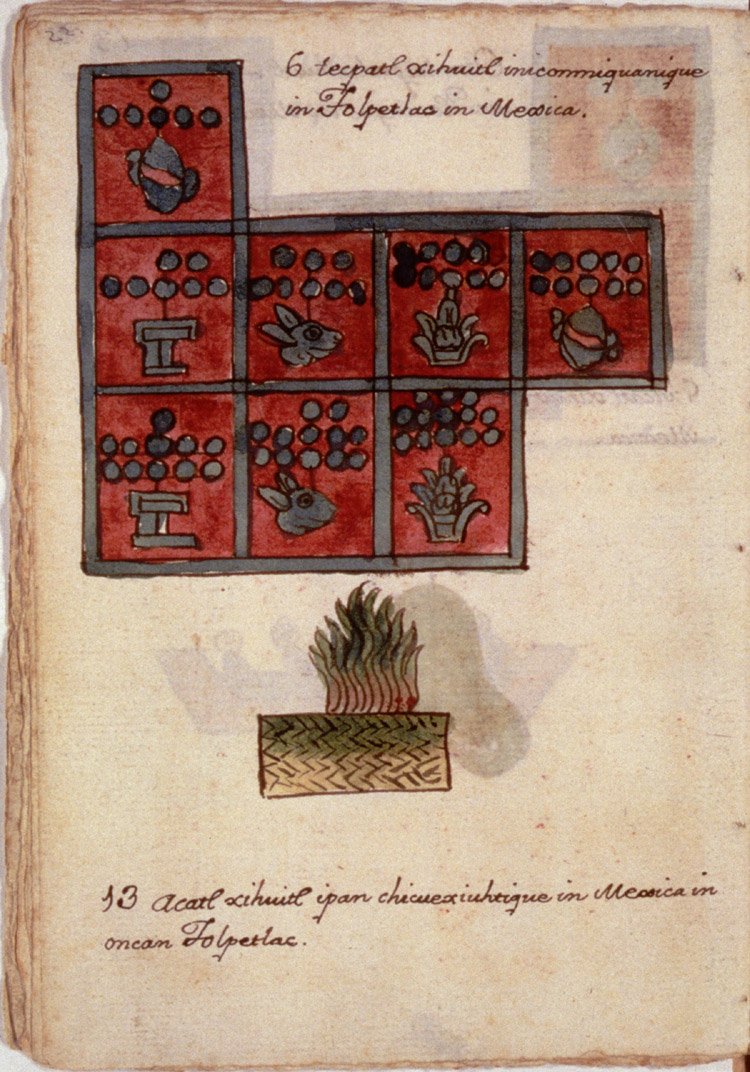 22
6 tecpatl xihuitl inicommiquanique
in Tolpetlac in Mexica.
13 Acatl xihuitl ipan chicuexiuhtique in Mexica in
oncan Tolpetlac.